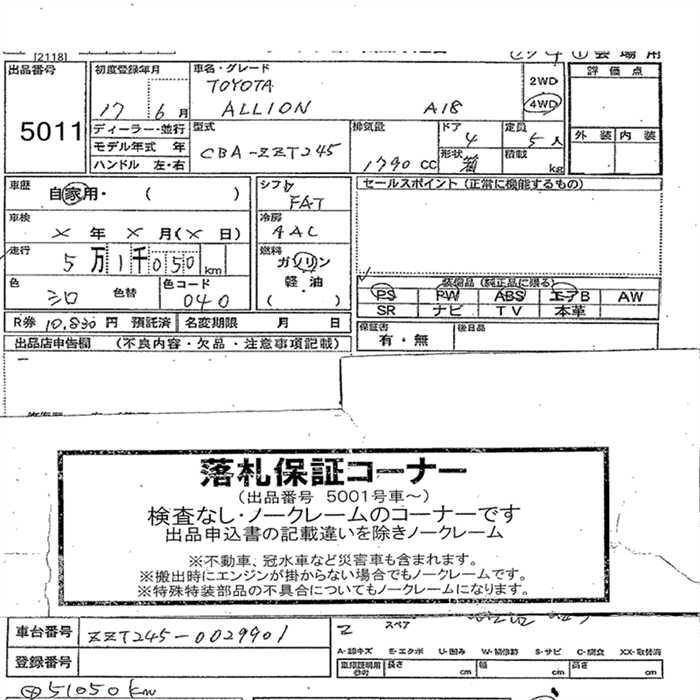 [2118]
① 会場用
出品番号 初度登録年月 車名・グレード 評価点
TOYOTA 2WD
17 6月 ALLION A18 4WD
5011 ディーラー・並行 型式 排気量 ドア 定員 外装 内装
モデル年式 年 CBA-ZZT245 4 5人
ハンドル 左・右 1790 CC 形状 箱 積載 kg
車歴 自家用・( ) シフト FAT セールスポイント (正常に機能するもの)
車検 × 年 × 月(× 日) 冷房 AAC
走行 5万1千050km 燃料 ガソリン
色 シロ 色替 色コード 040 軽・油
( )
装備品 (純正品に限る)
PS PW ABS エアB AW
SR ナビ TV 本革
R券 10,830 円 預託済 名変期限 月 日 保証書 有・無 後日品
出品店申告欄 (不良内容・欠品・注意事項記載)
落札保証コーナー
(出品番号 5001号車~)
検査なし・ノークレームのコーナーです
出品申込書の記載違いを除きノークレーム
※不動車、冠水車など災害車も含まれます。
※搬出時にエンジンが掛からない場合でもノークレームです。
※特殊特装部品の不具合についてもノークレームになります。
車台番号 ZZT245-0029901 スペア
登録番号 A-線キズ E-エクボ U-凹み W-補修跡 S-サビ C-腐食 XX-取替済
車庫証明用参考 長さ cm 幅 cm 高さ cm
51050km